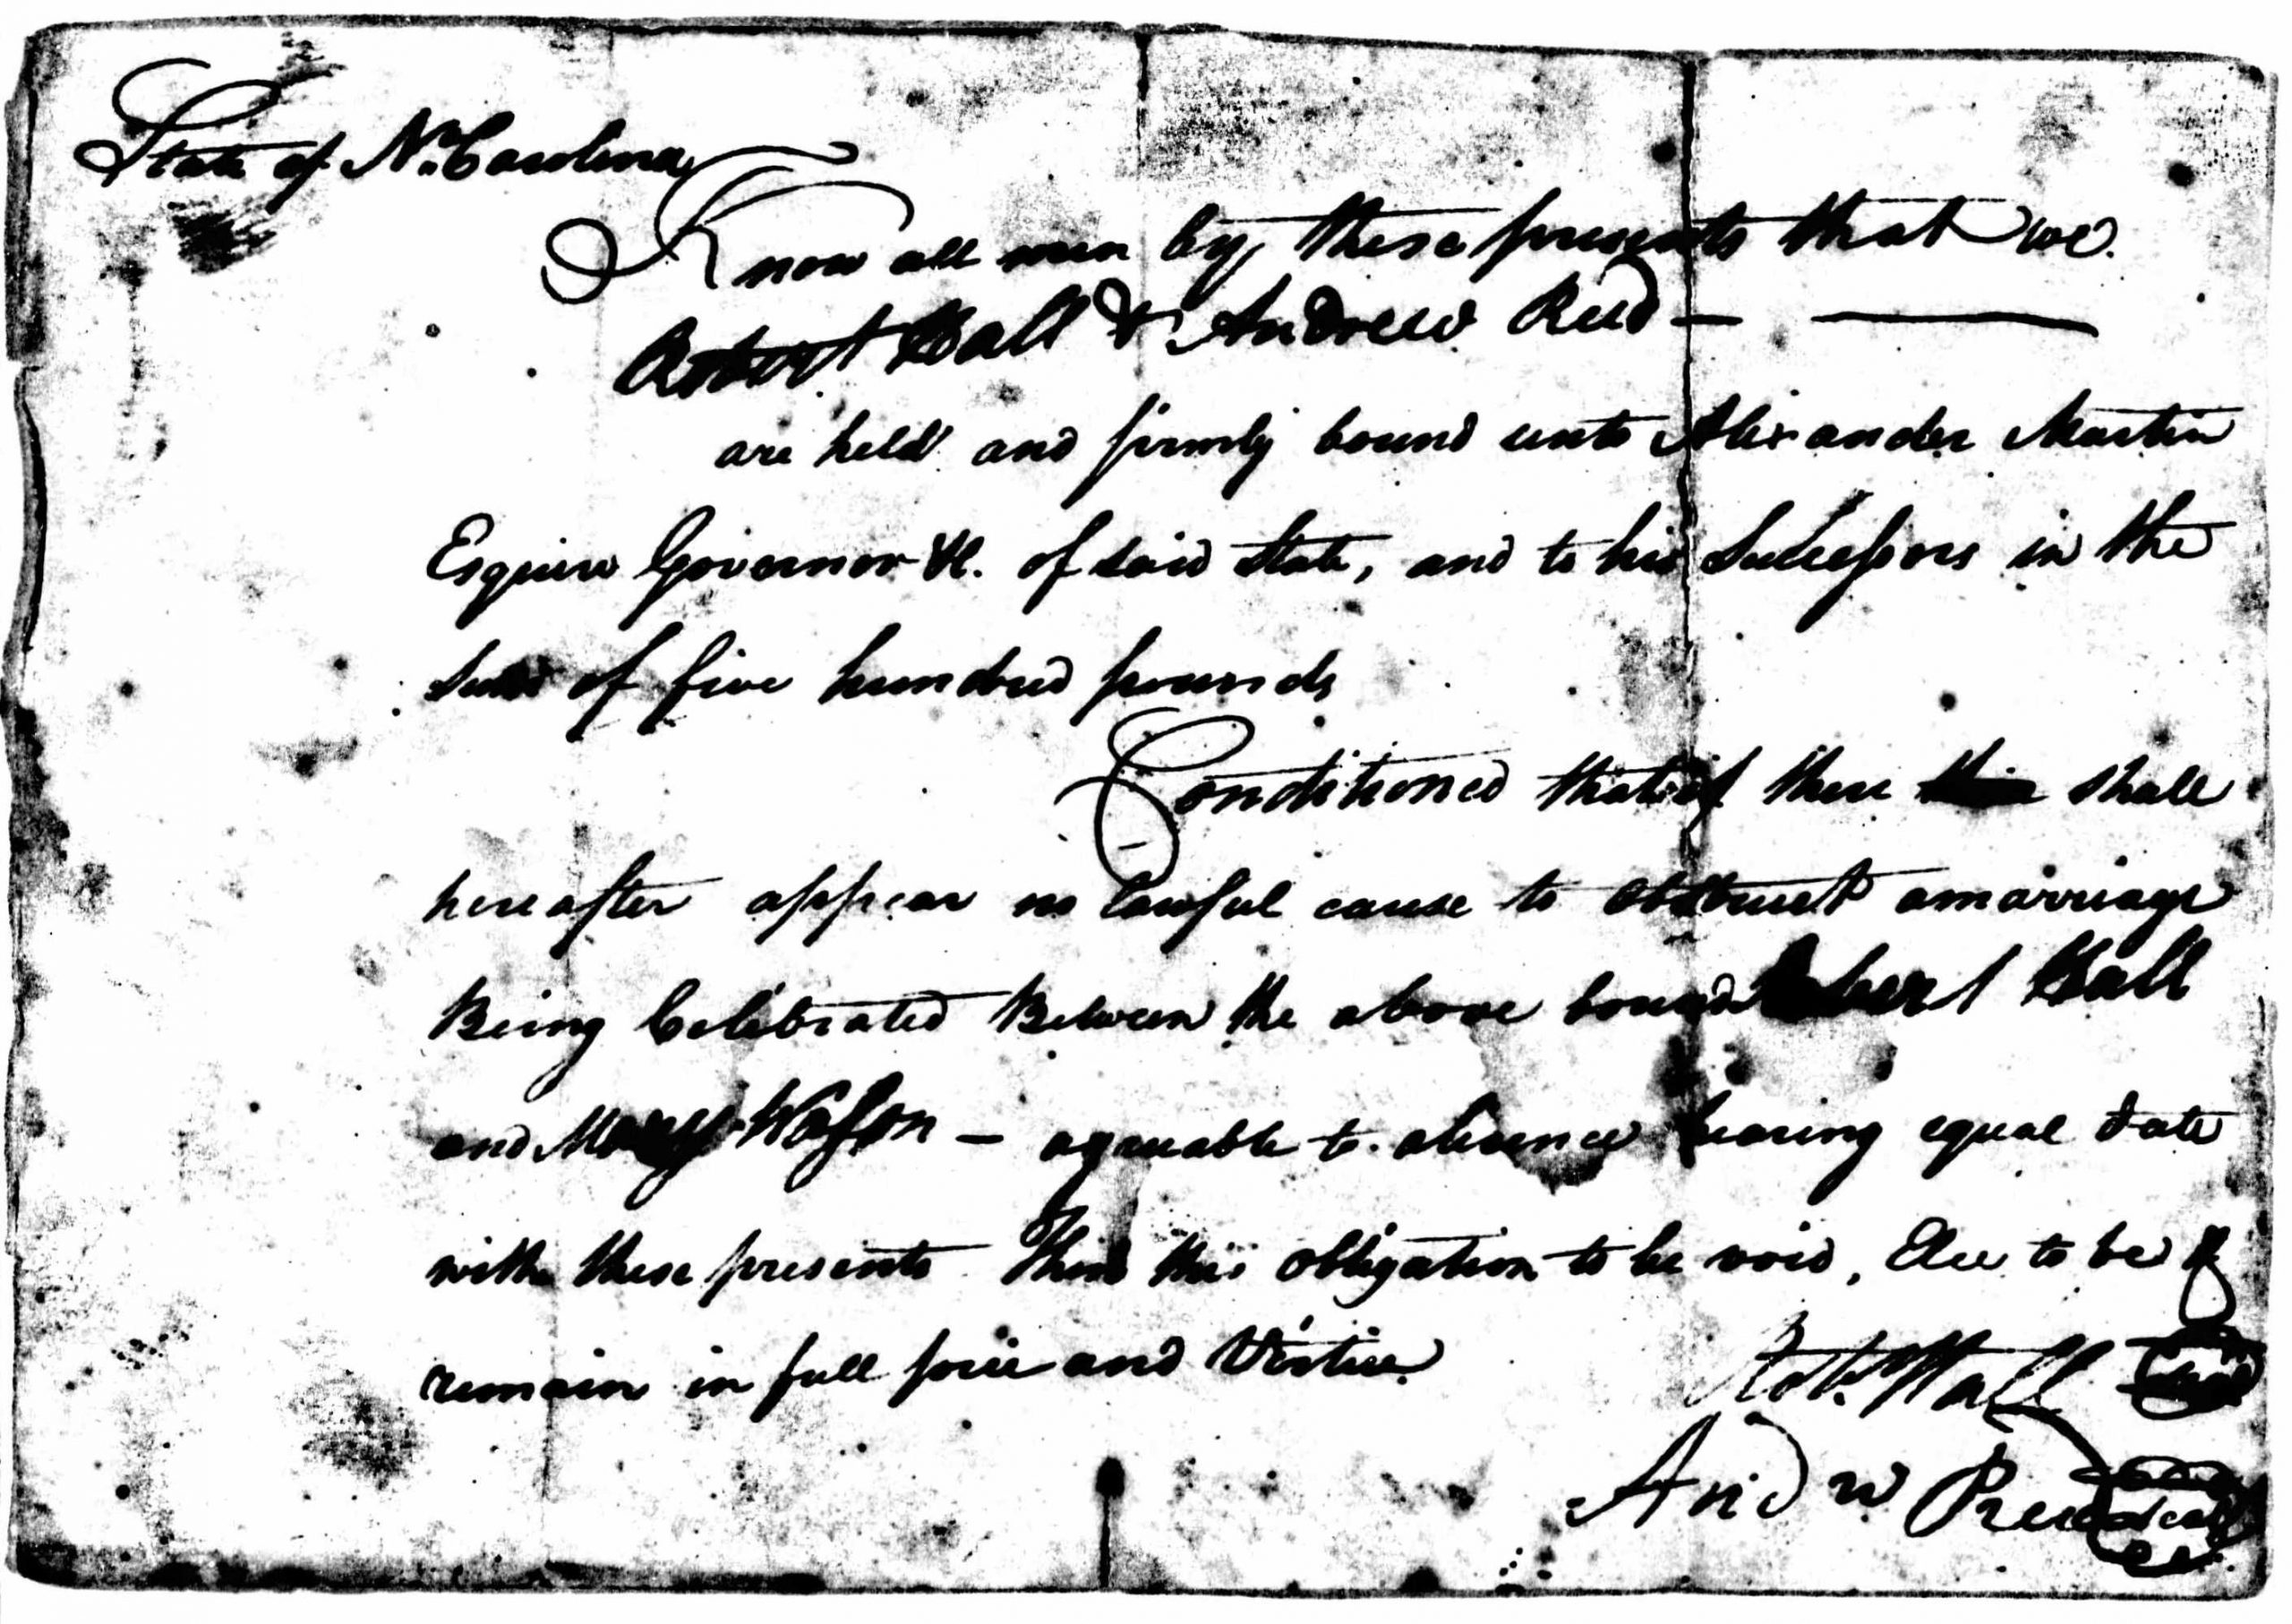 State of No. Carolina
Know all men by these presents that we
Robert Hall & Andrew Reed
are held and firmly bound unto Alexander Martin
Esquire Governor &c. of said State, and to his Successors in the
sum of five hundred pounds
Conditioned that if there shall
hereafter appear no lawful cause to obstruct a marriage
Being Celebrated Between the above bound Robert Hall
and Mary Wason — agreeable to a licence bearing equal date
with these presents Then this obligation to be void, Else to be &
remain in full force and Virtue.
Robt. Hall
Andw Reed seal